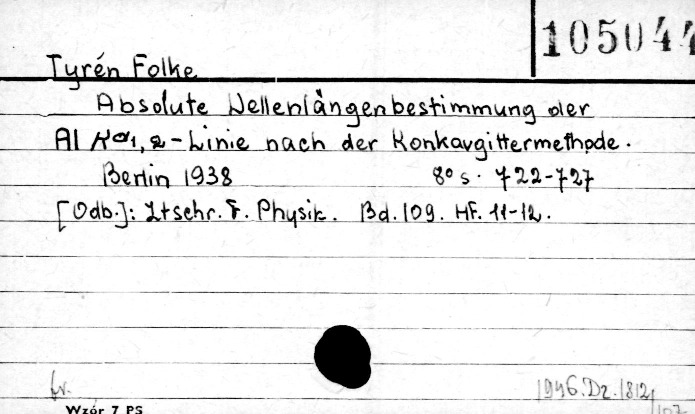 105044
Tyrén Folke
Absolute Wellenlängenbestimmung der
Al Kα1,2-Linie nach der Konkavgittermethode.
Berlin 1938 8° s. 722-727
[Odb.]: Ztschr. F. Physik. Bd. 109. Hf. 11-12.
fr.
1946.Dz.1812/
Wzór 7 PS